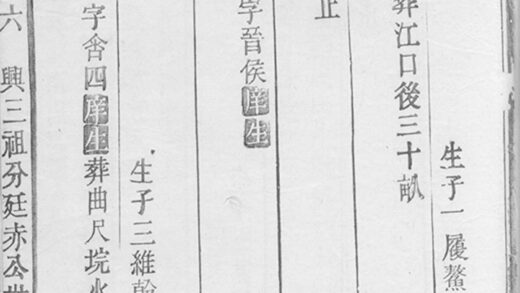 生子一履鰲
葬江口後三十畝
止
字晉侯庠生
生子三維翰
字舍四庠生葬曲尺垸水
六 興三祖分廷赤公世